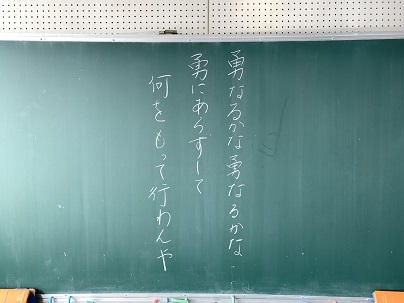 勇なるかな勇なるかな…
勇にあらずして
何をもって行わんや